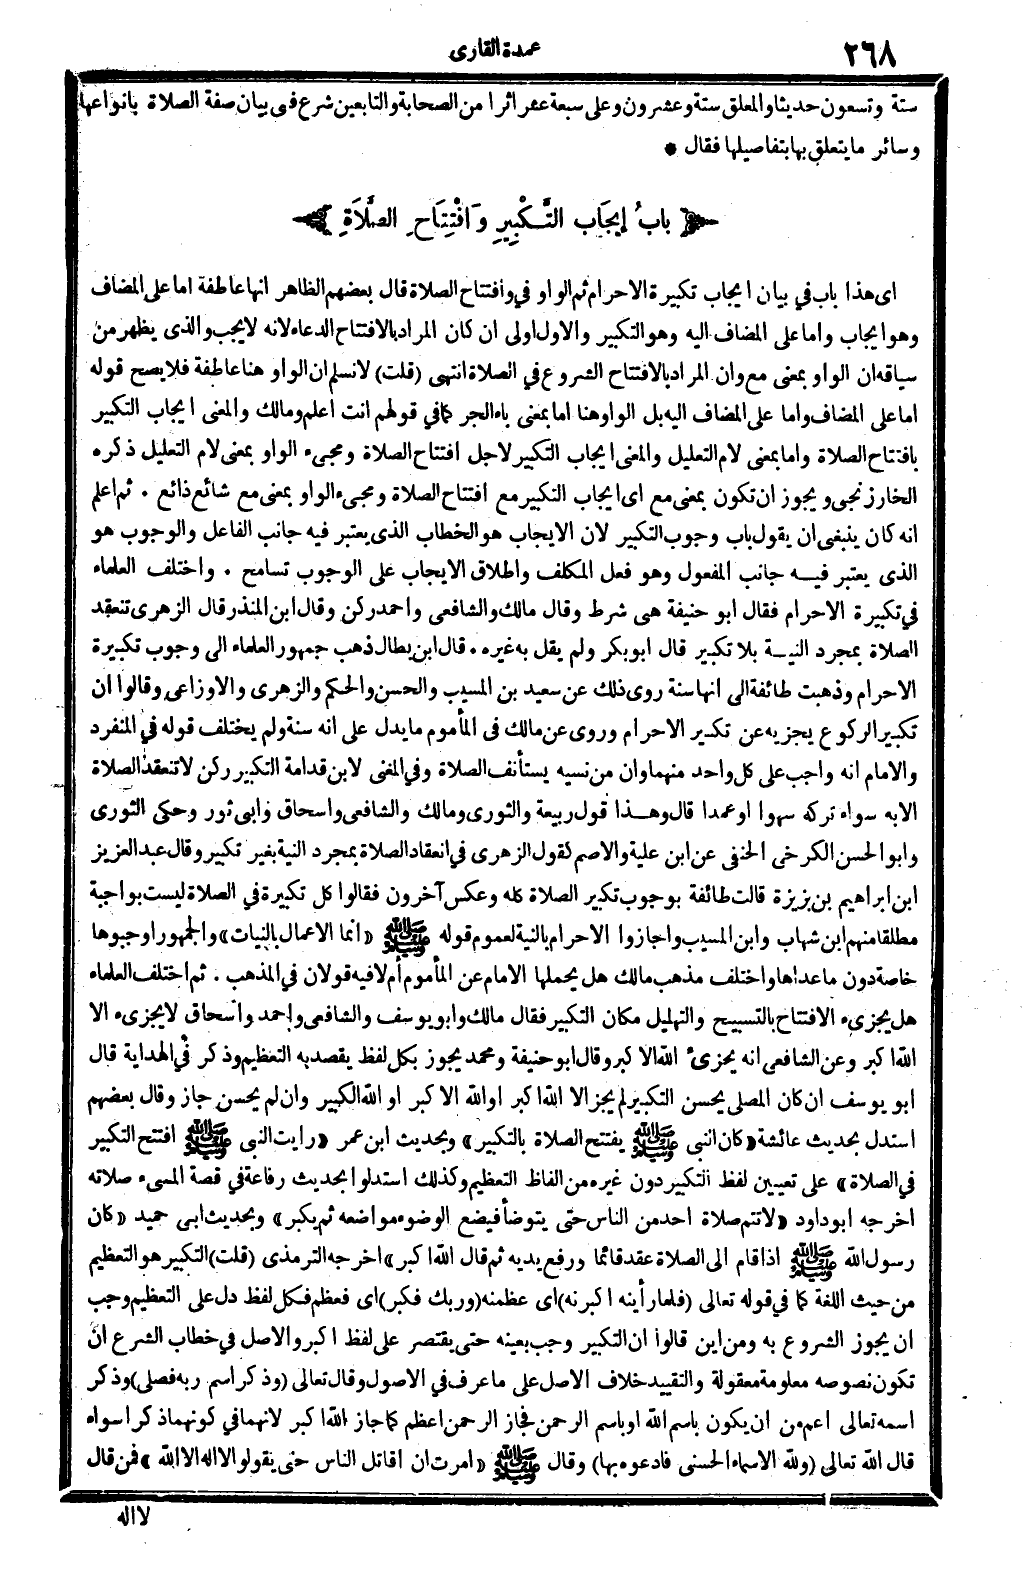 ٢٦٨
عمدة القارى
ستة وتسعون حديثا والمعلق ستة وعشرون وعلى سبعة عشر اثرا من الصحابة والتابعين شرع فى بيان صفة الصلاة بانواعها
وسائر ما يتعلق بها بتفاصيلها فقال *
باب إيجاب التكبير وافتتاح الصلاة
اى هذا باب فى بيان ايجاب تكبيرة الاحرام ثم الواو فى وافتتاح الصلاة قال بعضهم الظاهر انها عاطفة اما على المضاف
وهو ايجاب واما على المضاف اليه وهو التكبير والاول اولى ان كان المراد بالافتتاح الدعاء لانه لايجب والذى يظهر من
سياقه ان الواو بمعنى مع وان المراد بالافتتاح الشروع فى الصلاة انتهى (قلت) لانسلم ان الواو هنا عاطفة فلا يصح قوله
اما على المضاف واما على المضاف اليه بل الواو هنا اما بمعنى باء الجر كما فى قولهم انت اعلم ومالك والمعنى ايجاب التكبير
بافتتاح الصلاة واما بمعنى لام التعليل والمعنى ايجاب التكبير لاجل افتتاح الصلاة ومجىء الواو بمعنى لام التعليل ذكره
الخارزنجى ويجوز ان تكون بمعنى مع اى ايجاب التكبير مع افتتاح الصلاة ومجىء الواو بمعنى مع شائع ذائع . ثم اعلم
انه كان ينبغى ان يقول باب وجوب التكبير لان الايجاب هو الخطاب الذى يعتبر فيه جانب الفاعل والوجوب هو
الذى يعتبر فيه جانب المفعول وهو فعل المكلف واطلاق الايجاب على الوجوب تسامح . واختلف العلماء
فى تكبيرة الاحرام فقال ابو حنيفة هى شرط وقال مالك والشافعى واحمد ركن وقال ابن المنذر قال الزهرى تنعقد
الصلاة بمجرد النية بلا تكبير قال ابو بكر ولم يقل به غيره . قال ابن بطال ذهب جمهور العلماء الى وجوب تكبيرة
الاحرام وذهبت طائفة الى انها سنة روى ذلك عن سعيد بن المسيب والحسن والحكم والزهرى والاوزاعى وقالوا ان
تكبير الركوع يجزيه عن تكبير الاحرام وروى عن مالك فى المأموم ما يدل على انه سنة ولم يختلف قوله فى المنفرد
والامام انه واجب على كل واحد منهما وان من نسيه يستأنف الصلاة وفى المغنى لابن قدامة التكبير ركن لاتنعقد الصلاة
الا به سواء تركه سهوا او عمدا قال وهذا قول ربيعة والثورى ومالك والشافعى واسحاق وابى ثور وحكى الثورى
وابو الحسن الكرخى الحنفى عن ابن علية والاصم كقول الزهرى فى انعقاد الصلاة بمجرد النية بغير تكبير وقال عبد العزيز
ابن ابراهيم بن بزيزة قالت طائفة بوجوب تكبير الصلاة كله وعكس آخرون فقالوا كل تكبيرة فى الصلاة ليست بواجبة
مطلقا منهم ابن شهاب وابن المسيب واجازوا الاحرام بالنية لعموم قوله ﷺ «انما الاعمال بالنيات» والجمهور اوجبوها
خاصة دون ما عداها واختلف مذهب مالك هل يحملها الامام عن المأموم أم لا فيه قولان فى المذهب . ثم اختلف العلماء
هل يجزىء الافتتاح بالتسبيح والتهليل مكان التكبير فقال مالك وابو يوسف والشافعى واحمد واسحاق لايجزىء الا
الله اكبر وعن الشافعى انه يجزىء الله الاكبر وقال ابو حنيفة ومحمد يجوز بكل لفظ يقصد به التعظيم وذكر فى الهداية قال
ابو يوسف ان كان المصلى يحسن التكبير لم يجز الا الله اكبر او الله الاكبر او الله الكبير وان لم يحسن جاز وقال بعضهم
استدل بحديث عائشة «كان النبى ﷺ يفتتح الصلاة بالتكبير» وبحديث ابن عمر «رايت النبى ﷺ افتتح التكبير
فى الصلاة» على تعيين لفظ التكبير دون غيره من الفاظ التعظيم وكذلك استدلوا بحديث رفاعة فى قصة المسىء صلاته
اخرجه ابو داود «لا تتم صلاة احد من الناس حتى يتوضأ فيضع الوضوء مواضعه ثم يكبر» وبحديث ابى حميد «كان
رسول الله ﷺ اذا قام الى الصلاة عقد قائما ورفع يديه ثم قال الله اكبر» اخرجه الترمذى (قلت) التكبير هو التعظيم
من حيث اللغة كما فى قوله تعالى (فلما رأينه اكبرنه) اى عظمنه (وربك فكبر) اى فعظم فكل لفظ دل على التعظيم وجب
ان يجوز الشروع به ومن اين قالوا ان التكبير وجب بعينه حتى يقتصر على لفظ اكبر والاصل فى خطاب الشرع ان
تكون نصوصه معلومة معقولة والتقييد خلاف الاصل على ما عرف فى الاصول وقال تعالى (وذكر اسم ربه فصلى) وذكر
اسمه تعالى اعم من ان يكون باسم الله او باسم الرحمن فجاز الرحمن اعظم كما جاز الله اكبر لانهما فى كونهما ذكرا سواء
قال الله تعالى (ولله الاسماء الحسنى فادعوه بها) وقال ﷺ «امرت ان اقاتل الناس حتى يقولوا لا اله الا الله» فمن قال
لا اله